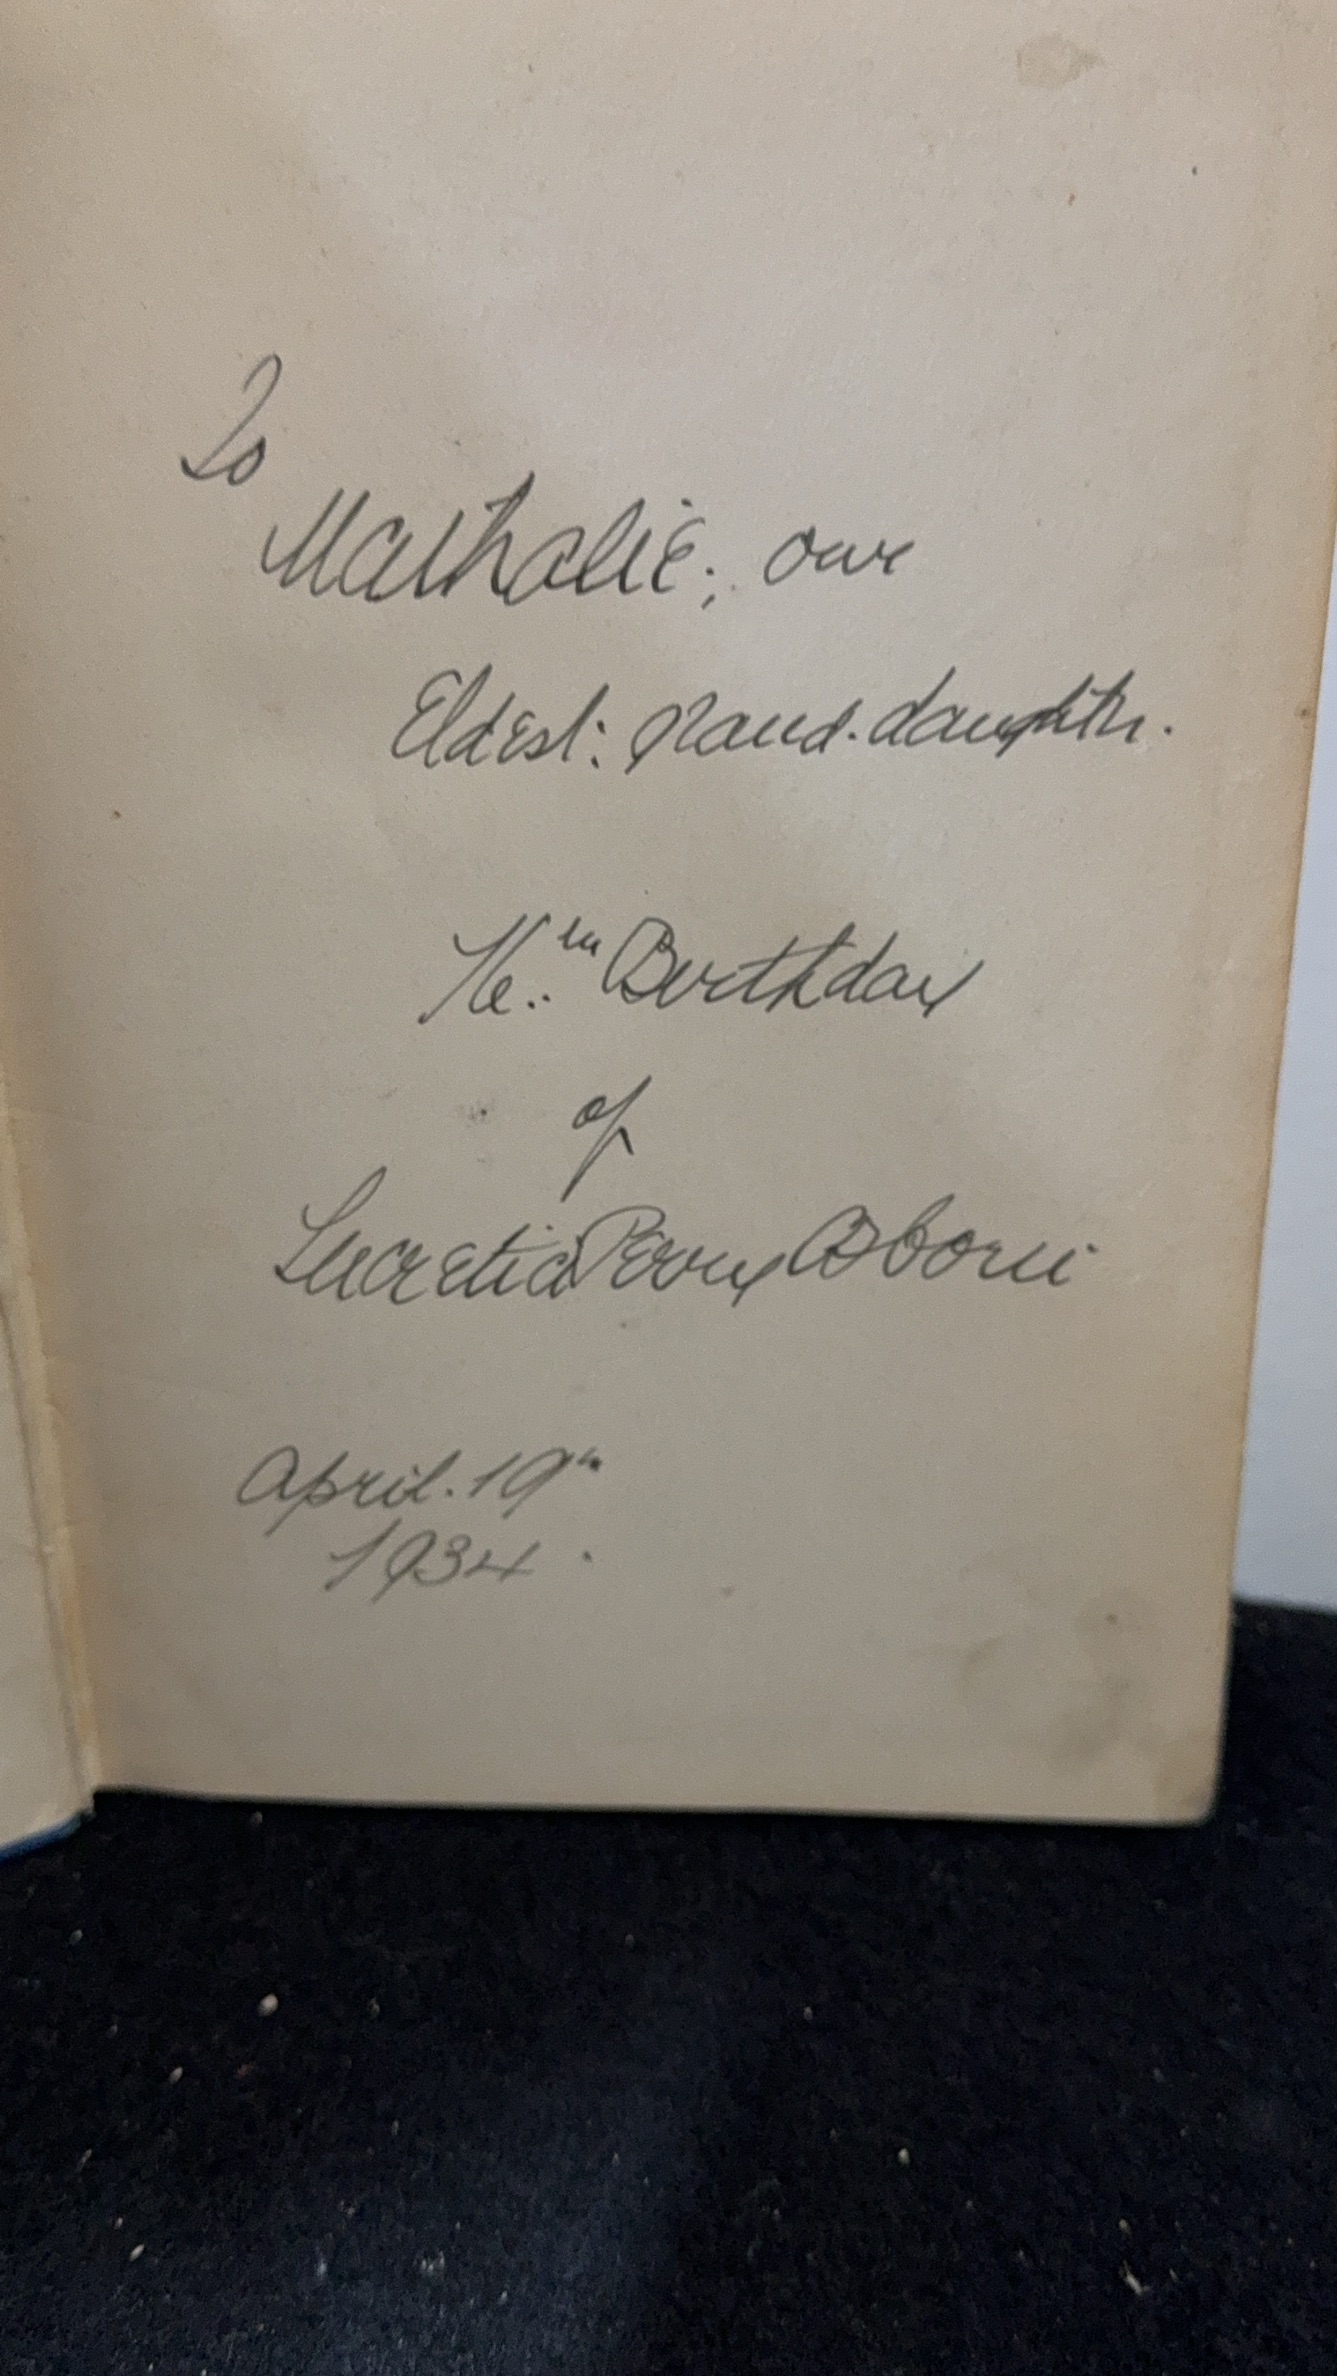 To
Nathalie; our
Eldest: grand-daughter.
76.th Birthday
of
Lucretia Perry Osborn
April. 19th
1934.